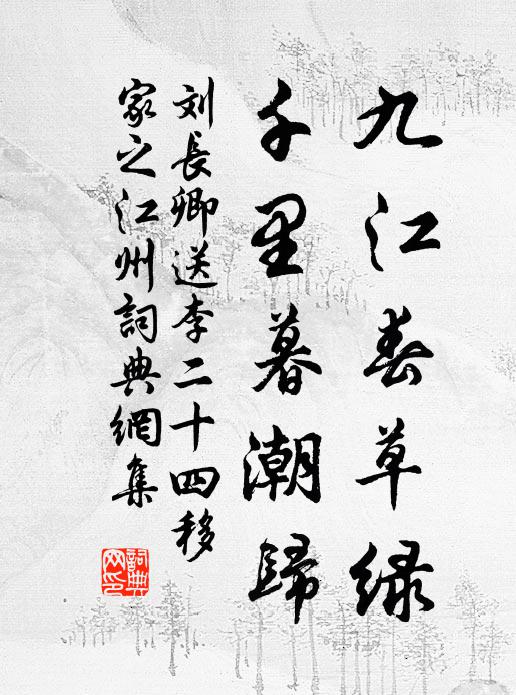 九江春草绿
千里暮潮歸
刘長卿送李二十四移
家之江州詞典網集
詞典
网印